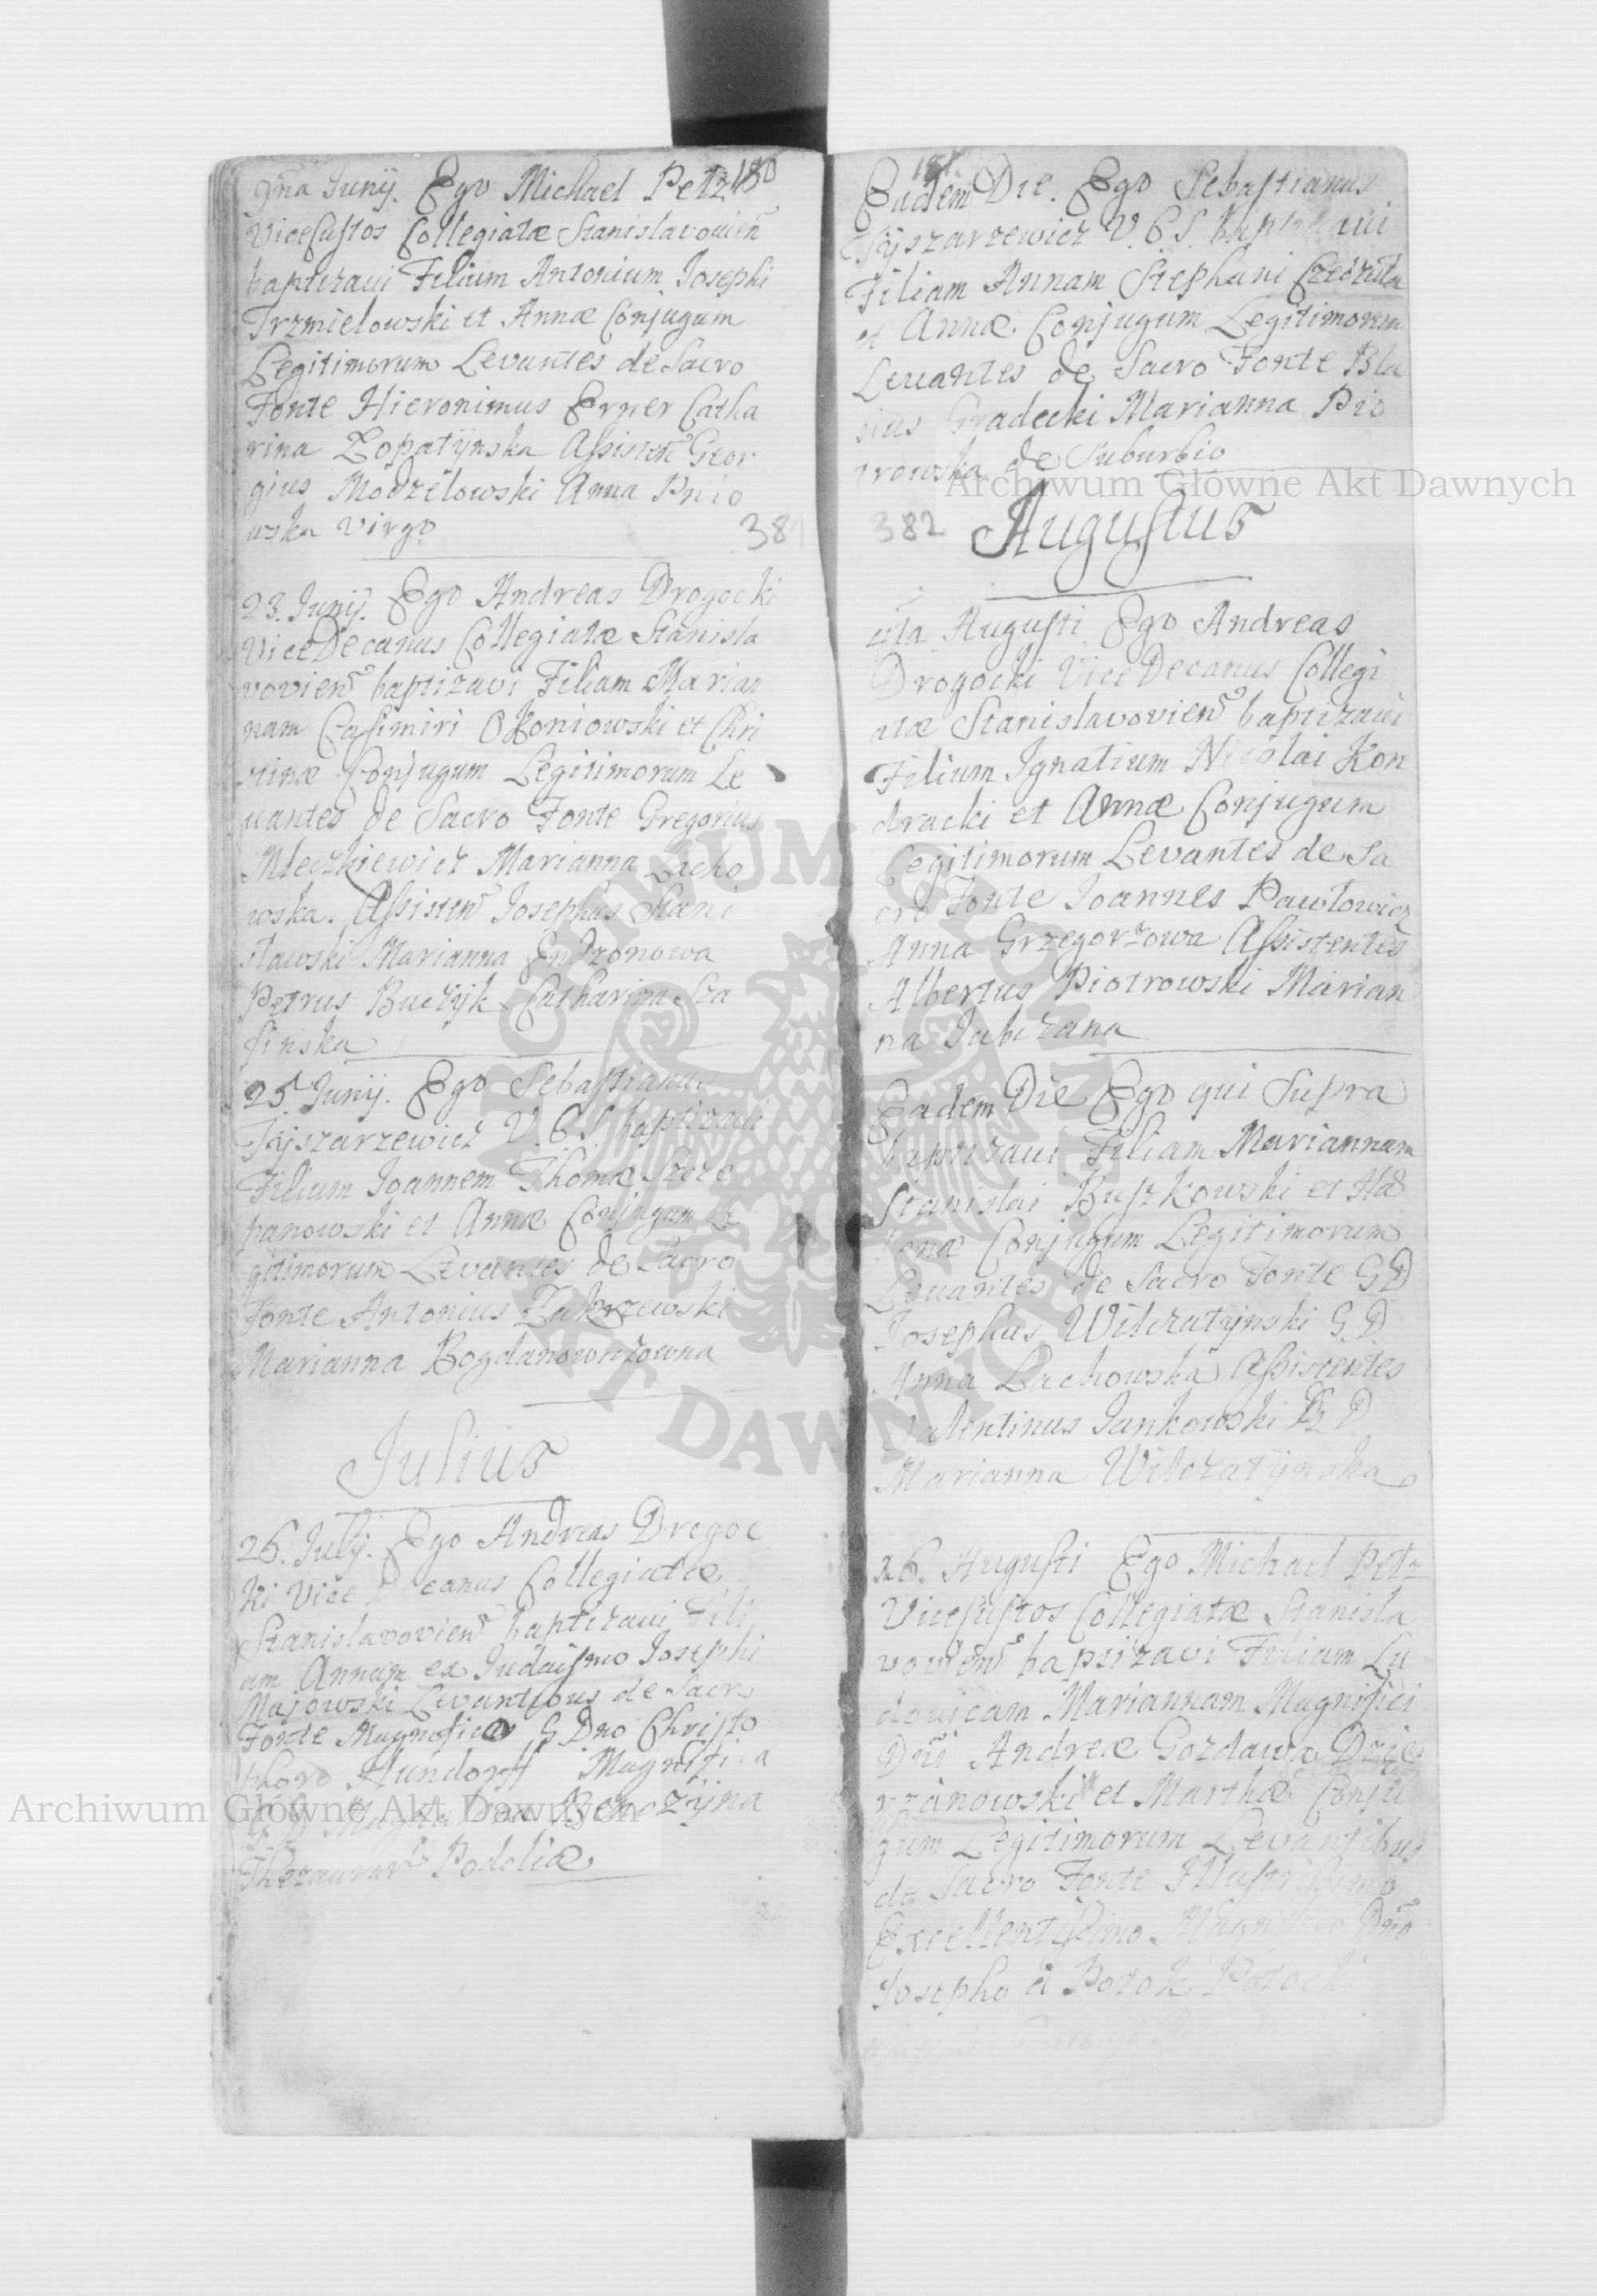 180
9na Junÿ. Ego Michael Petz
ViceCustos Collegiatæ Stanislavovien
baptizavi Filium Antonium Josephi
Trzmielowski et Annæ Conjugum
Legitimorum Levantes de Sacro
Fonte Hieronimus Erner Catha
rina Lopatÿnska Assisten Geor
gius Modzelowski Anna
wska Virgo
381
23. Junÿ. Ego Andreas Drogocki
ViceDecanus Collegiatæ Stanisla
vovien baptizavi Filiam Marian
nam Casimiri Okoniowski et Chri
stinæ Conjugum Legitimorum Le
uantes de Sacro Fonte Gregorius
Mleczkiewicz Marianna Lacho
wska. Assisten Josephus Stani
sławski Marianna Endzonowa
Petrus Buczÿk Catharina Sza
finska
25. Junÿ. Ego Sebastianus
Fajszarzewicz V. C. S. baptizavi
Filium Joannem Thomæ Szcze
panowski et Annæ Conjugum Le
gitimorum Levantes de Sacro
Fonte Antonius Zakrzewski
Marianna Bogdanowiczowna
Julius
26. Julÿ. Ego Andreas Drogoc
ki Vice Decanus Collegiatæ
Stanislavovien baptizaui Fili
am Annam ex Judaismo Josephi
Majowski Levantibus de Sacro
Fonte Magnifico G Dno Christo
phoro Hundorff Magnifica
Thezaurar Podoliæ
Eadem Die. Ego Sebastianus
Fajszarzewicz V. C. S. baptizaui
Filiam Annam Stephani
et Annæ Conjugum Legitimorum
Leuantes de Sacro Fonte Bla
sius Gradecki Marianna Pio
trowska de Suburbio
382
Augustus
Augusti Ego Andreas
Drogocki Vice Decanus Collegi
atæ Stanislavovien baptizaui
Filium Ignatium Nicolai Kon
dracki et Annæ Conjugum
Legitimorum Levantes de Sa
cro Fonte Joannes Pawłowicz
Anna Grzegorzowa Assistentes
Albertus Piotrowski Marian
na
Eadem Die Ego qui Supra
baptizaui Filiam Mariannam
Stanislai Buszkowski et He
lenæ Conjugum Legitimorum
Leuantes de Sacro Fonte G D
Josephus Wilczatÿnski G. D
Anna Lachowska Assistentes
Valentinus Jankowski G. D
Marianna Wilczatÿnska
26. Augusti Ego Michael Petz
ViceCustos Collegiatæ Stanisla
vovien baptizavi Filiam Lu
dovicam Mariannam Magnifici
Dni Andreæ Gozdawa Dzie
rzanowski et Marthæ Conju
gum Legitimorum Levantibus
de Sacro Fonte Illustrissimo
Excellentissimo Dno
Josepho a Potok Potocki
Archiwum Główne Akt Dawnych
Archiwum Główne Akt Dawnych
ARCHIWUM GŁÓWNE AKT DAWNYCH